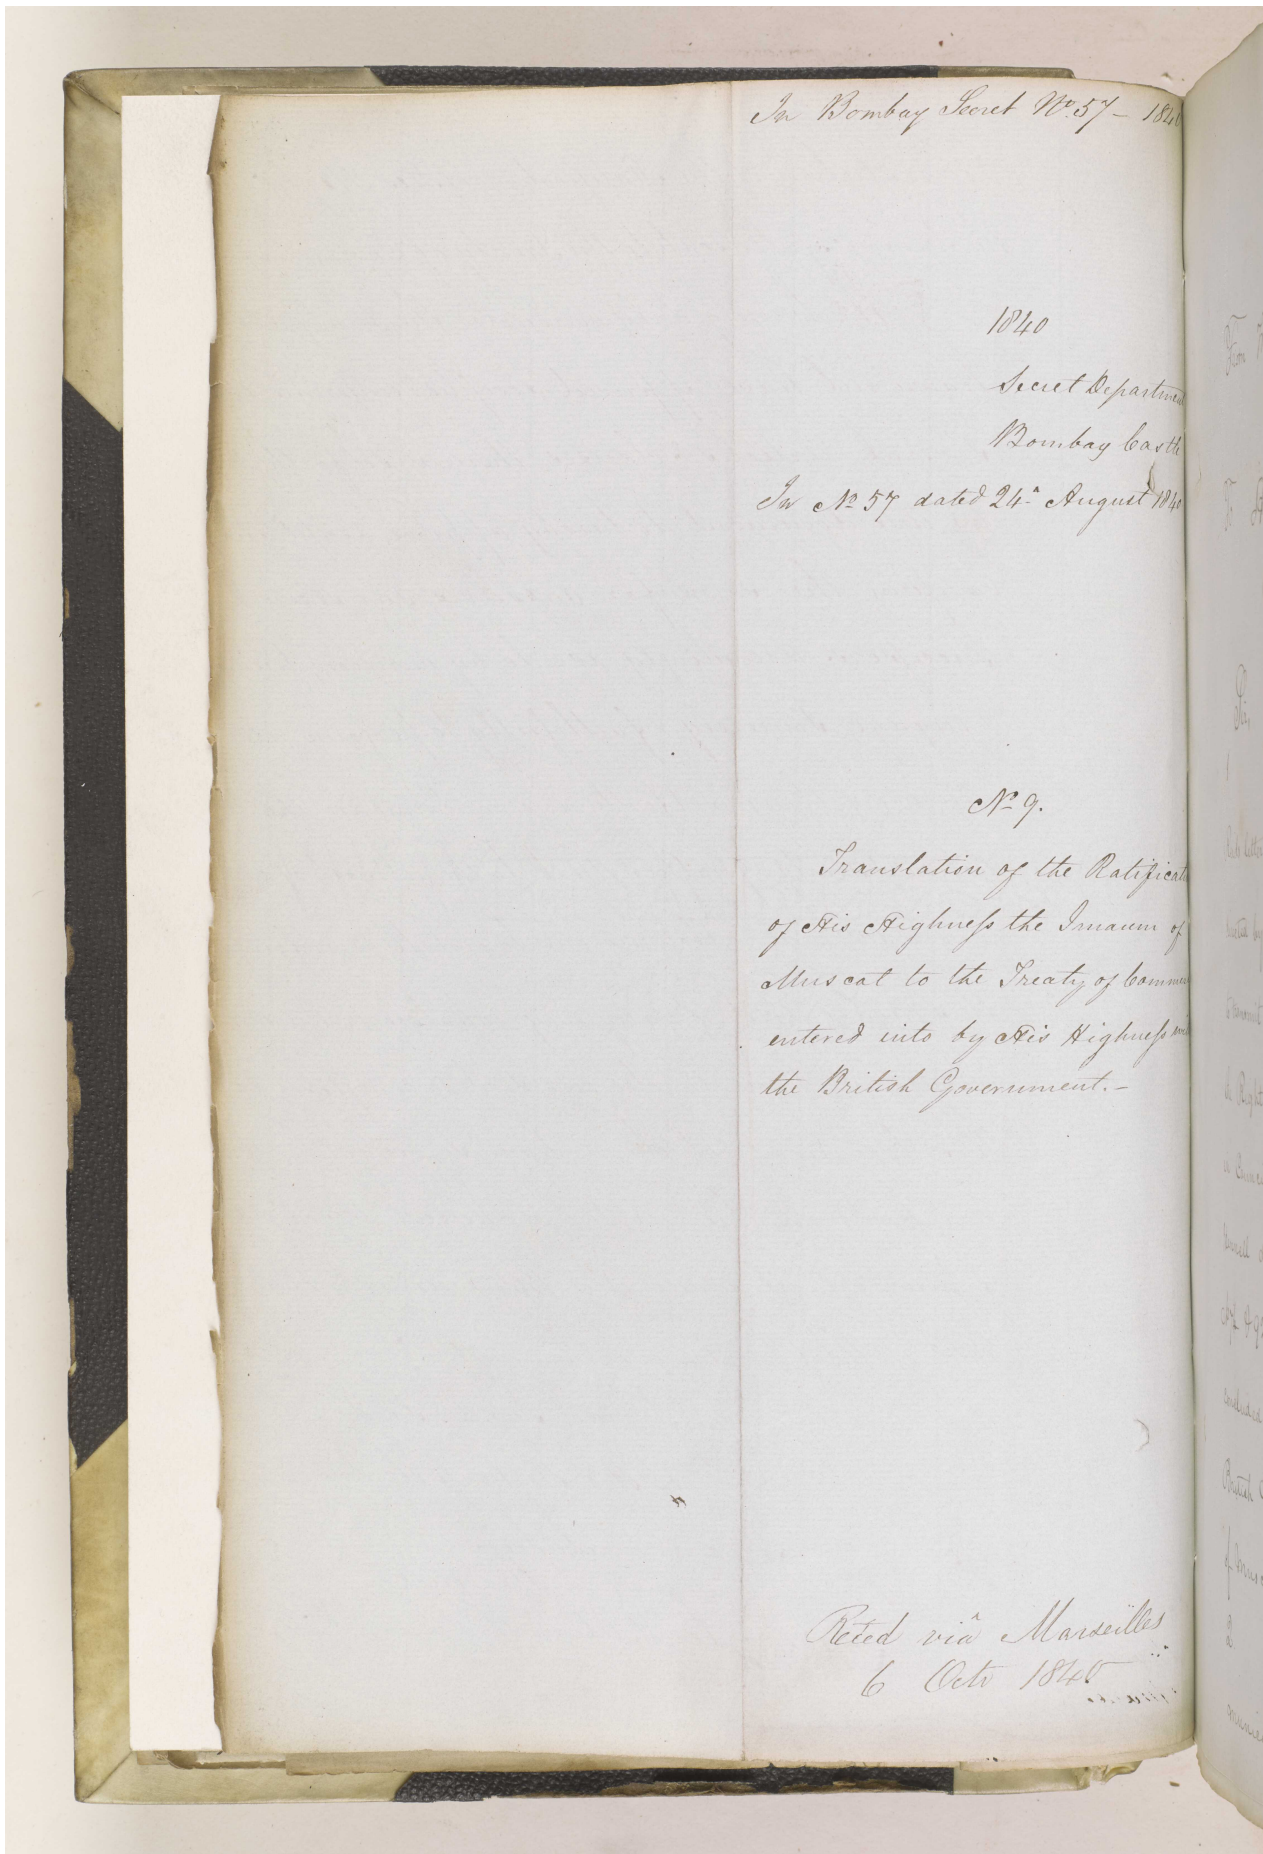 In Bombay Secret No. 57 - 1840
1840
Secret Department
Bombay Castle
In No 57 dated 24th August 1840
No 9.
Translation of the Ratificati
of His Highness the Imaum of
Muscat to the Treaty of Commer
entered into by His Highness wi
the British Government. -
Reced viâ Marseilles
6 Octr 1840